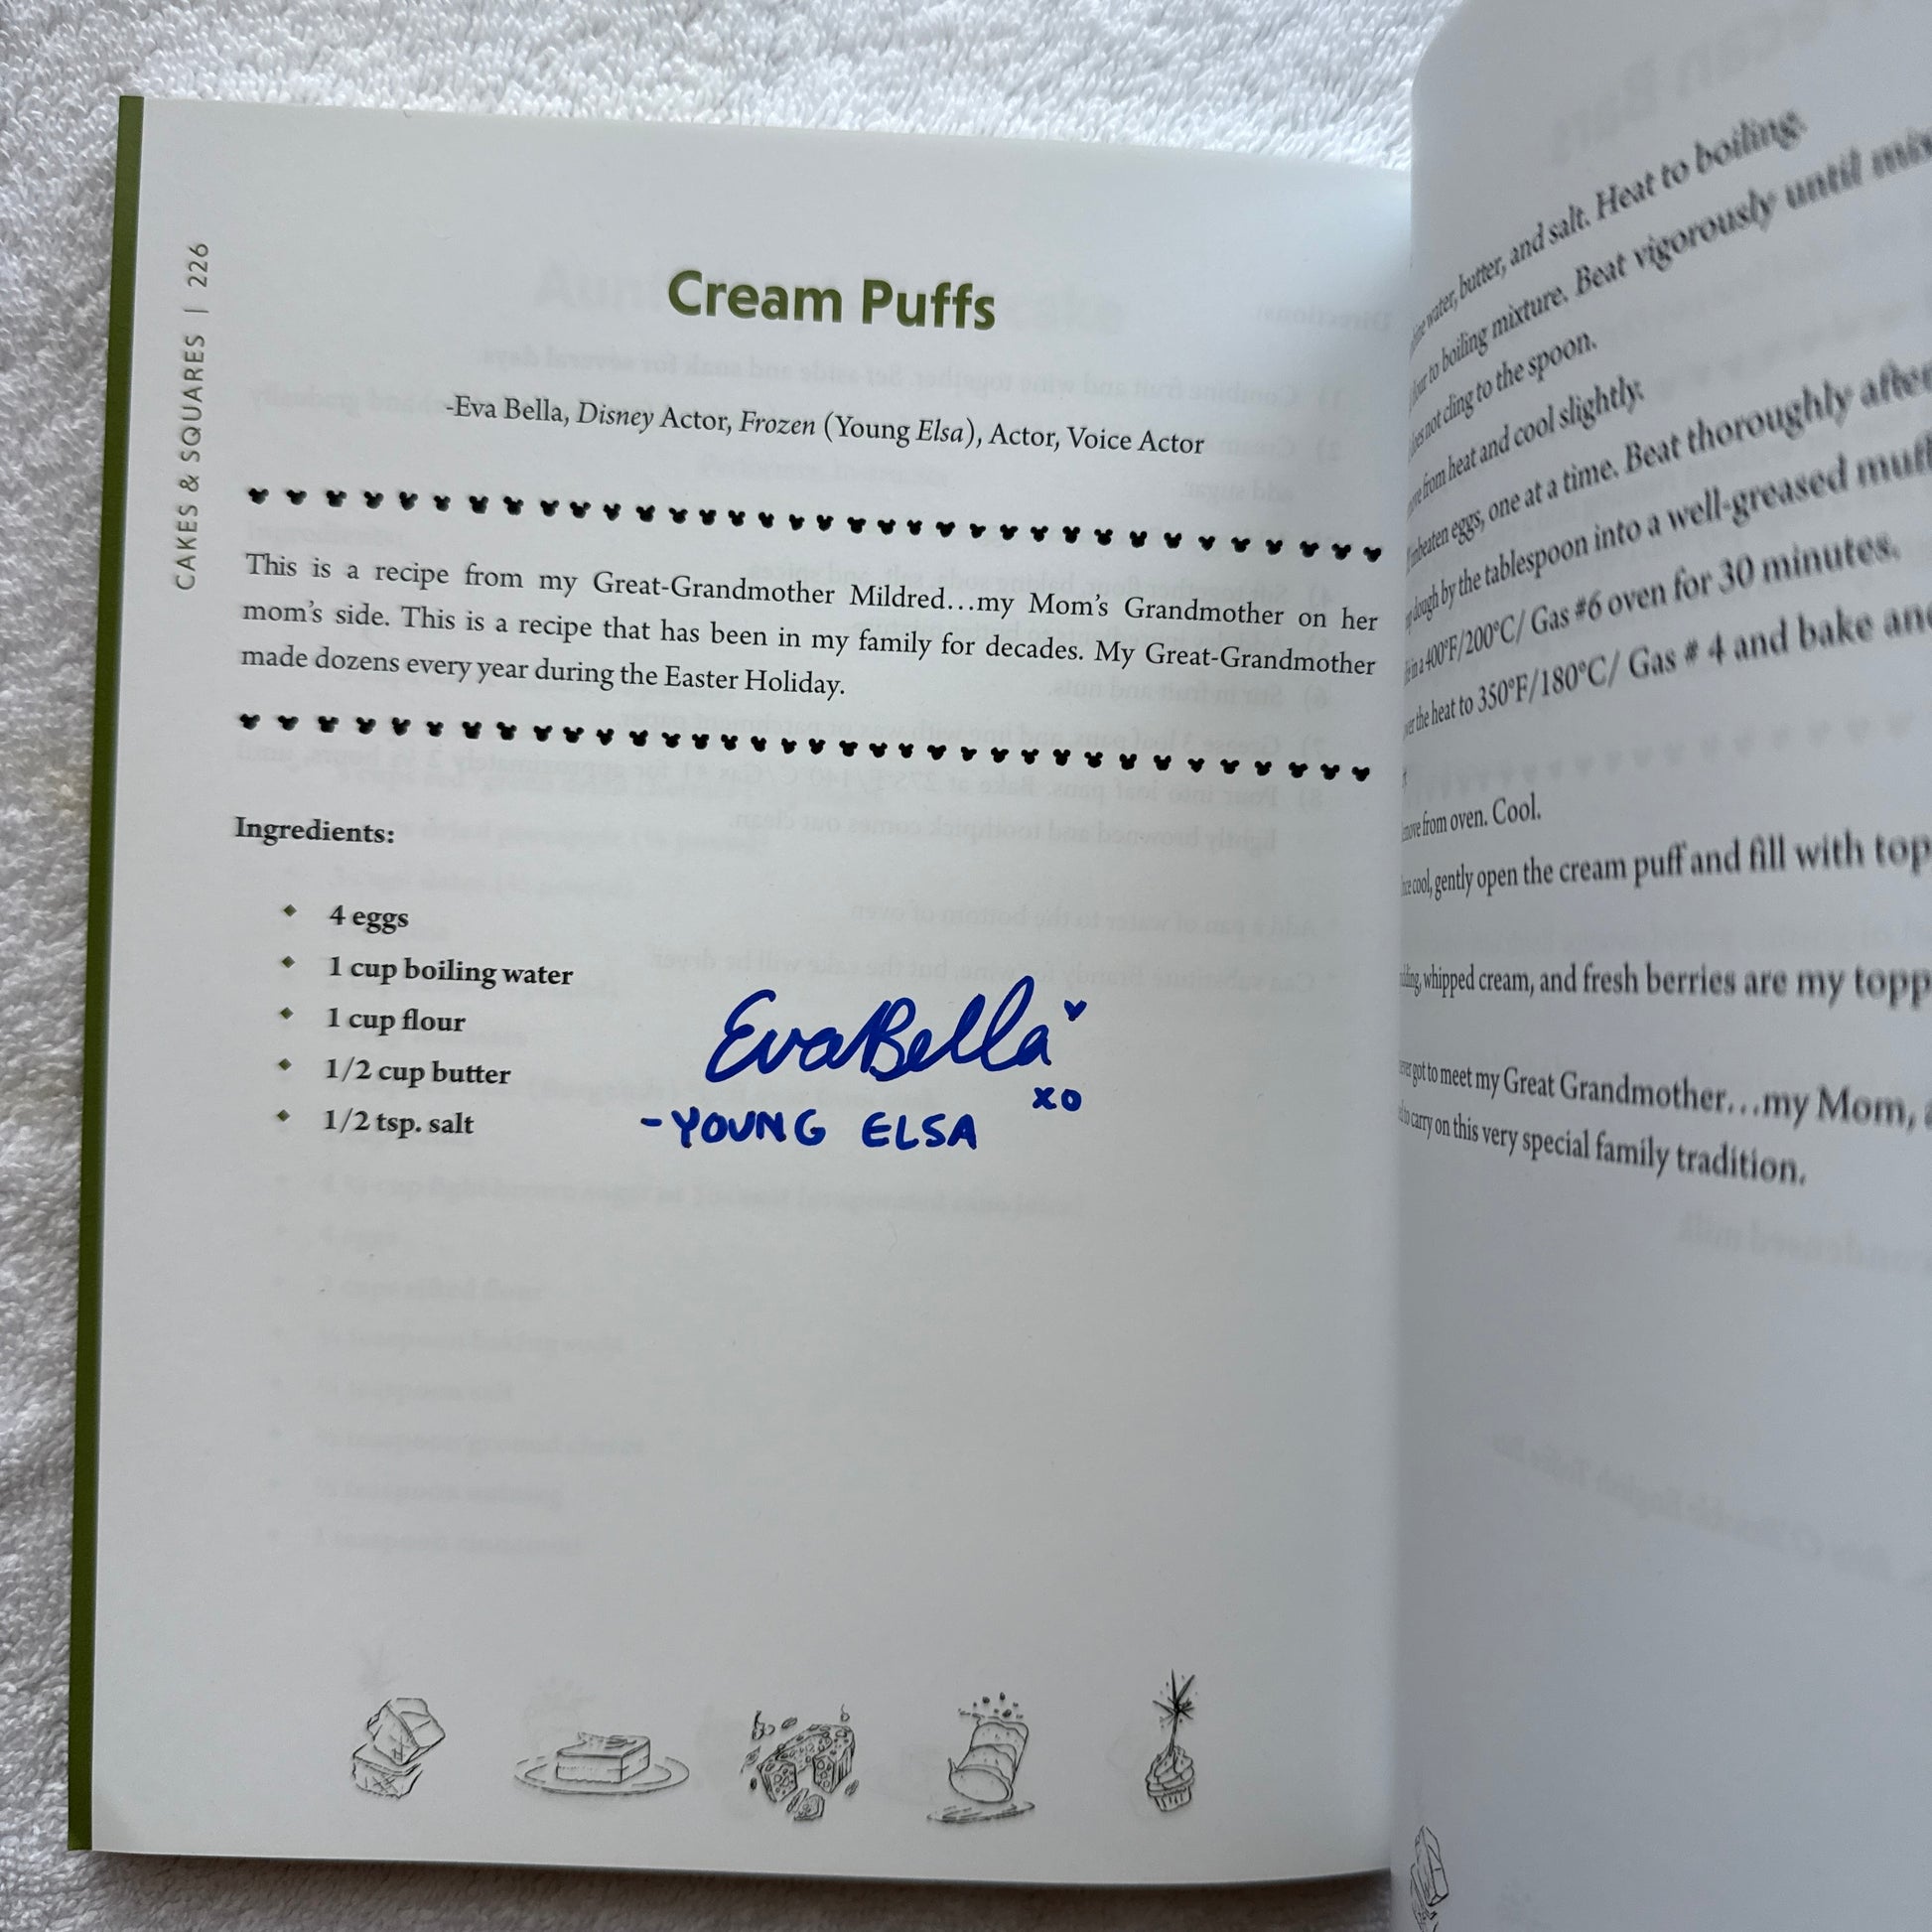 CAKES & SQUARES | 226
Cream Puffs
-Eva Bella, Disney Actor, Frozen (Young Elsa), Actor, Voice Actor
This is a recipe from my Great-Grandmother Mildred…my Mom's Grandmother on her
mom's side. This is a recipe that has been in my family for decades. My Great-Grandmother
made dozens every year during the Easter Holiday.
Ingredients:
4 eggs
1 cup boiling water
1 cup flour
1/2 cup butter
1/2 tsp. salt
EvaBella
xo
-YOUNG ELSA
water, butter, and salt. Heat to boiling.
to boiling mixture. Beat vigorously until
not cling to the spoon.
from heat and cool slightly.
eggs, one at a time. Beat thoroughly after
dough by the tablespoon into a well-greased
400°F/200°C/ Gas #6 oven for 30 minutes.
the heat to 350°F/180°C/ Gas # 4 and bake
from oven. Cool.
cool, gently open the cream puff and fill with
whipped cream, and fresh berries are my
got to meet my Great Grandmother…my Mom,
to carry on this very special family tradition.